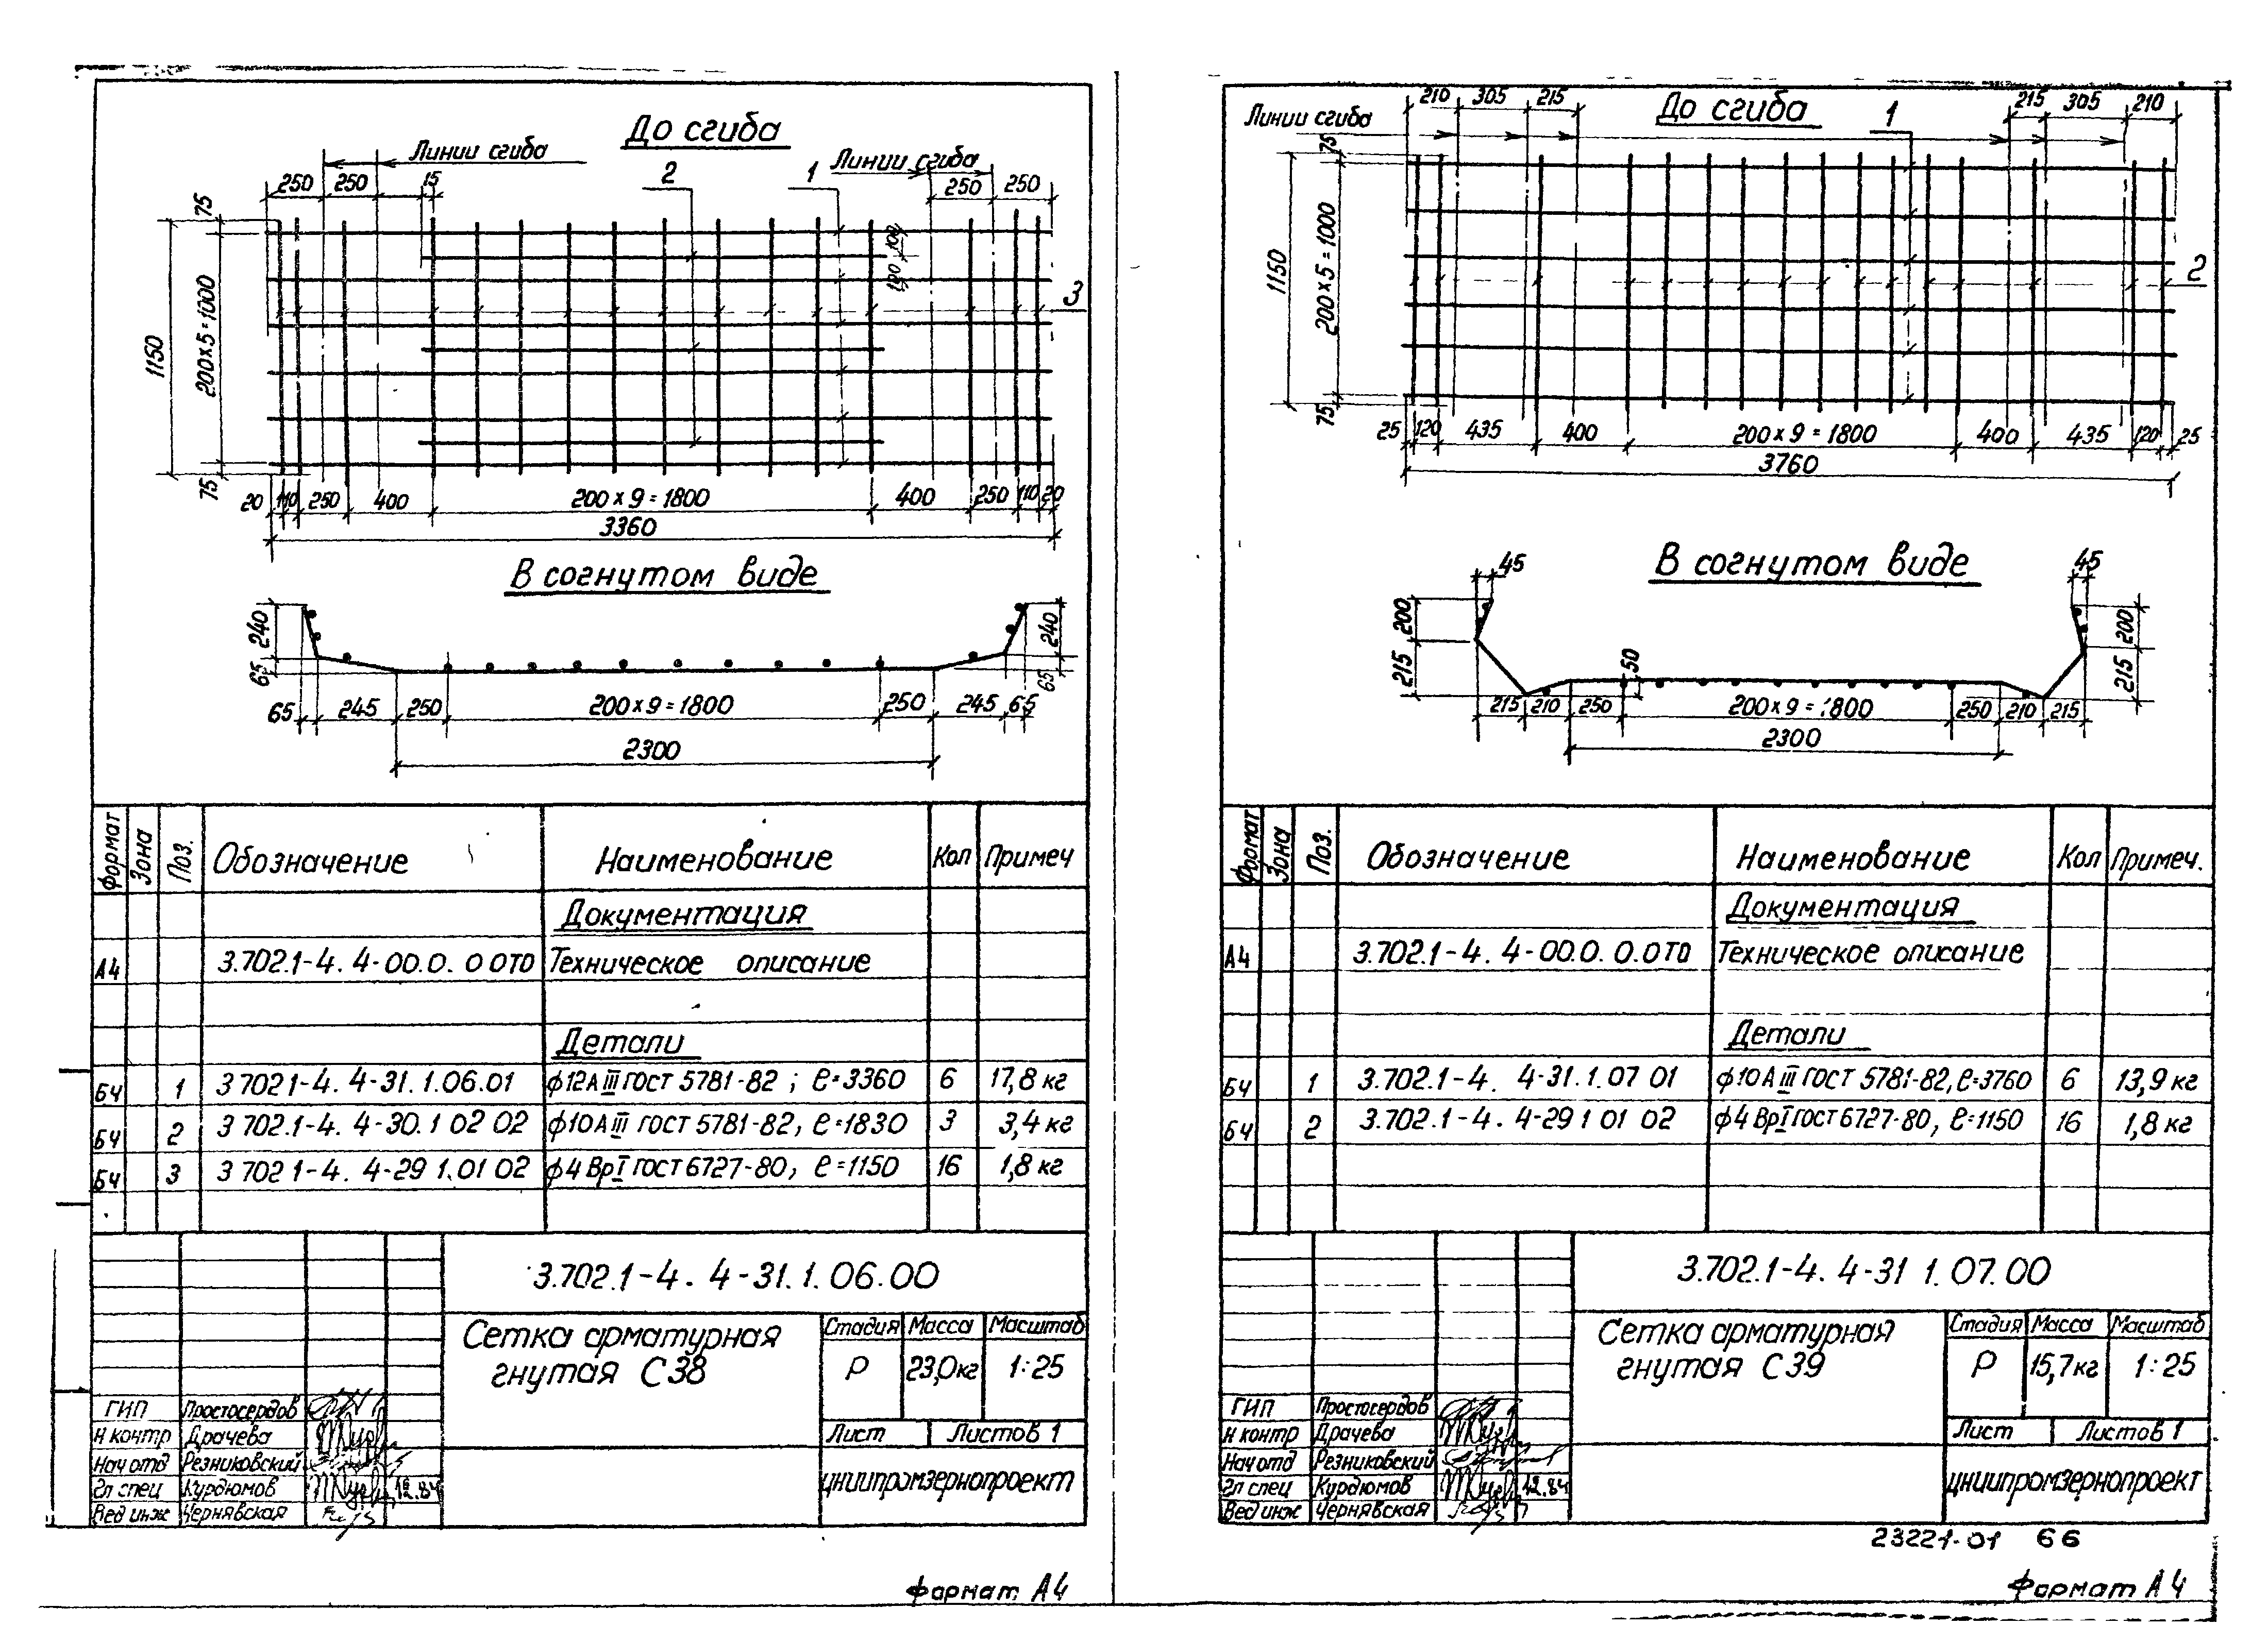 До сгиба
Линии сгиба
Линии сгиба
250 250 15 2 1 250 250
75
100
100
1150
200х5=1000
3
75
20 110 250 400 200х9=1800 400 250 110 20
3360
В согнутом виде
240 240
65 65
65 245 250 200х9=1800 250 245 65
2300
Формат Зона Поз. Обозначение Наименование Кол Примеч
Документация
А4 3.702.1-4. 4-00.0. 0 0ТО Техническое описание
Детали
БЧ 1 3 702 1-4. 4-31.1.06.01 ϕ12АIII ГОСТ 5781-82 ; ℓ=3360 6 17,8 кг
БЧ 2 3 702.1-4. 4-30.1 02 02 ϕ10АIII ГОСТ 5781-82, ℓ=1830 3 3,4 кг
БЧ 3 3 702 1-4. 4-29 1.01 02 ϕ4 ВрI ГОСТ 6727-80, ℓ=1150 16 1,8 кг
3.702.1-4. 4-31.1.06.00
Сетка арматурная
гнутая С38
Стадия Масса Масштаб
Р 23,0кг 1:25
Лист Листов 1
ЦНИИпромзернопроект
ГИП Простосердов
Н контр Драчева
Нач отд Резниковский
Гл спец Курдюмов 12.84
Вед инж Чернявская
Формат А4
210 305 215 До сгиба 215 305 210
Линии сгиба 1
75
1150
200х5=1000
2
75
25 120 435 400 200х9=1800 400 435 120 25
3760
В согнутом виде
45 45
200 200
215 50 215
215 210 250 200х9=1800 250 210 215
2300
Формат Зона Поз. Обозначение Наименование Кол Примеч.
Документация
А4 3.702.1-4. 4-00.0. 0.0ТО Техническое описание
Детали
БЧ 1 3.702.1-4. 4-31.1.07 01 ϕ10АIII ГОСТ 5781-82, ℓ=3760 6 13,9 кг
БЧ 2 3.702.1-4. 4-29 1 01 02 ϕ4 ВрI ГОСТ 6727-80, ℓ=1150 16 1,8 кг
3.702.1-4. 4-31 1.07.00
Сетка арматурная
гнутая С39
Стадия Масса Масштаб
Р 15,7кг 1:25
Лист Листов 1
ЦНИИпромзернопроект
ГИП Простосердов
Н контр Драчева
Нач отд Резниковский
Гл спец Курдюмов 12.84
Вед инж Чернявская
23221-01 66
Формат А4